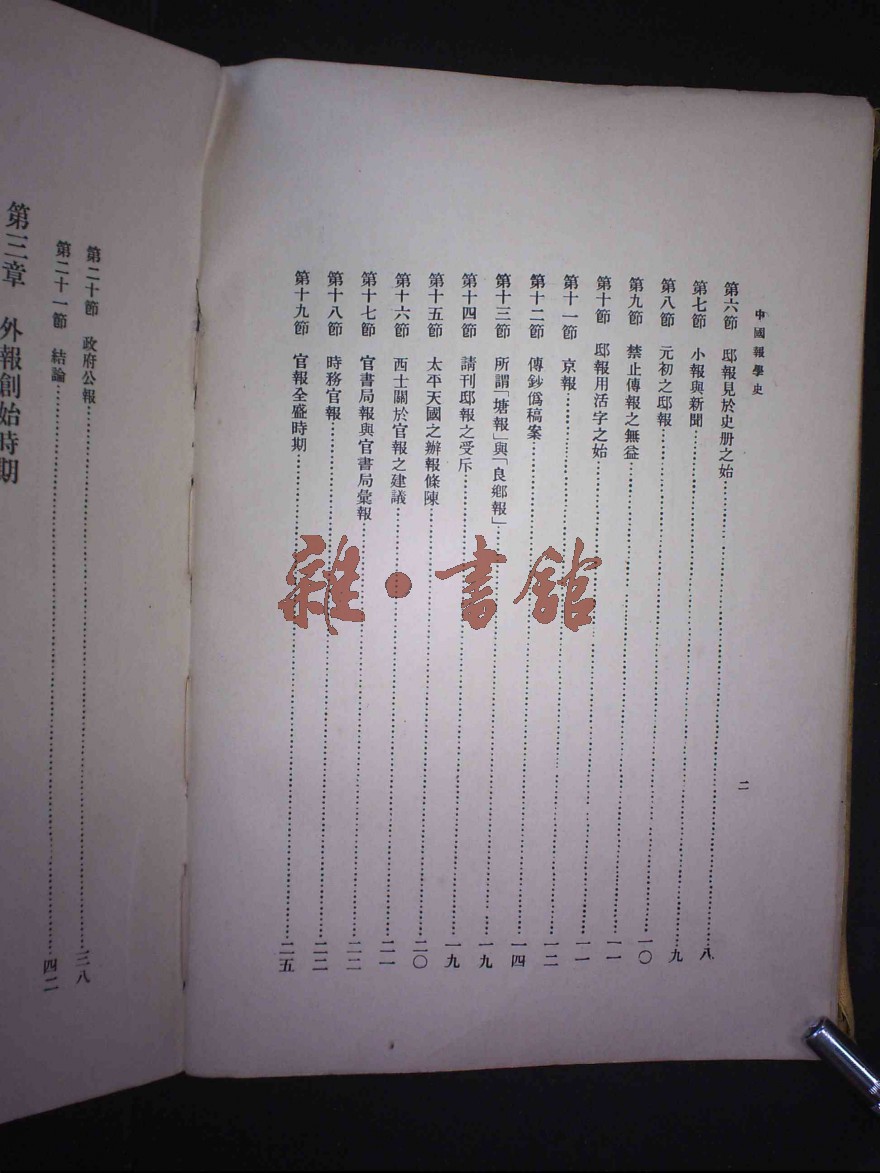 中國報學史
二
第六節 邸報見於史册之始………八
第七節 小報與新聞………九
第八節 元初之邸報………一〇
第九節 禁止傳報之無益………一一
第十節 邸報用活字之始………一一
第十一節 京報………一二
第十二節 傳鈔僞稿案………一四
第十三節 所謂「塘報」與「良鄉報」………一九
第十四節 請刊邸報之受斥………一九
第十五節 太平天國之辦報條陳………二〇
第十六節 西士關於官報之建議………二一
第十七節 官書局報與官書局彙報………二二
第十八節 時務官報………二二
第十九節 官報全盛時期………二五
第二十節 政府公報………三八
第二十一節 結論………四二
第三章 外報創始時期
雜·書館